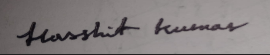 Harshit Kumar